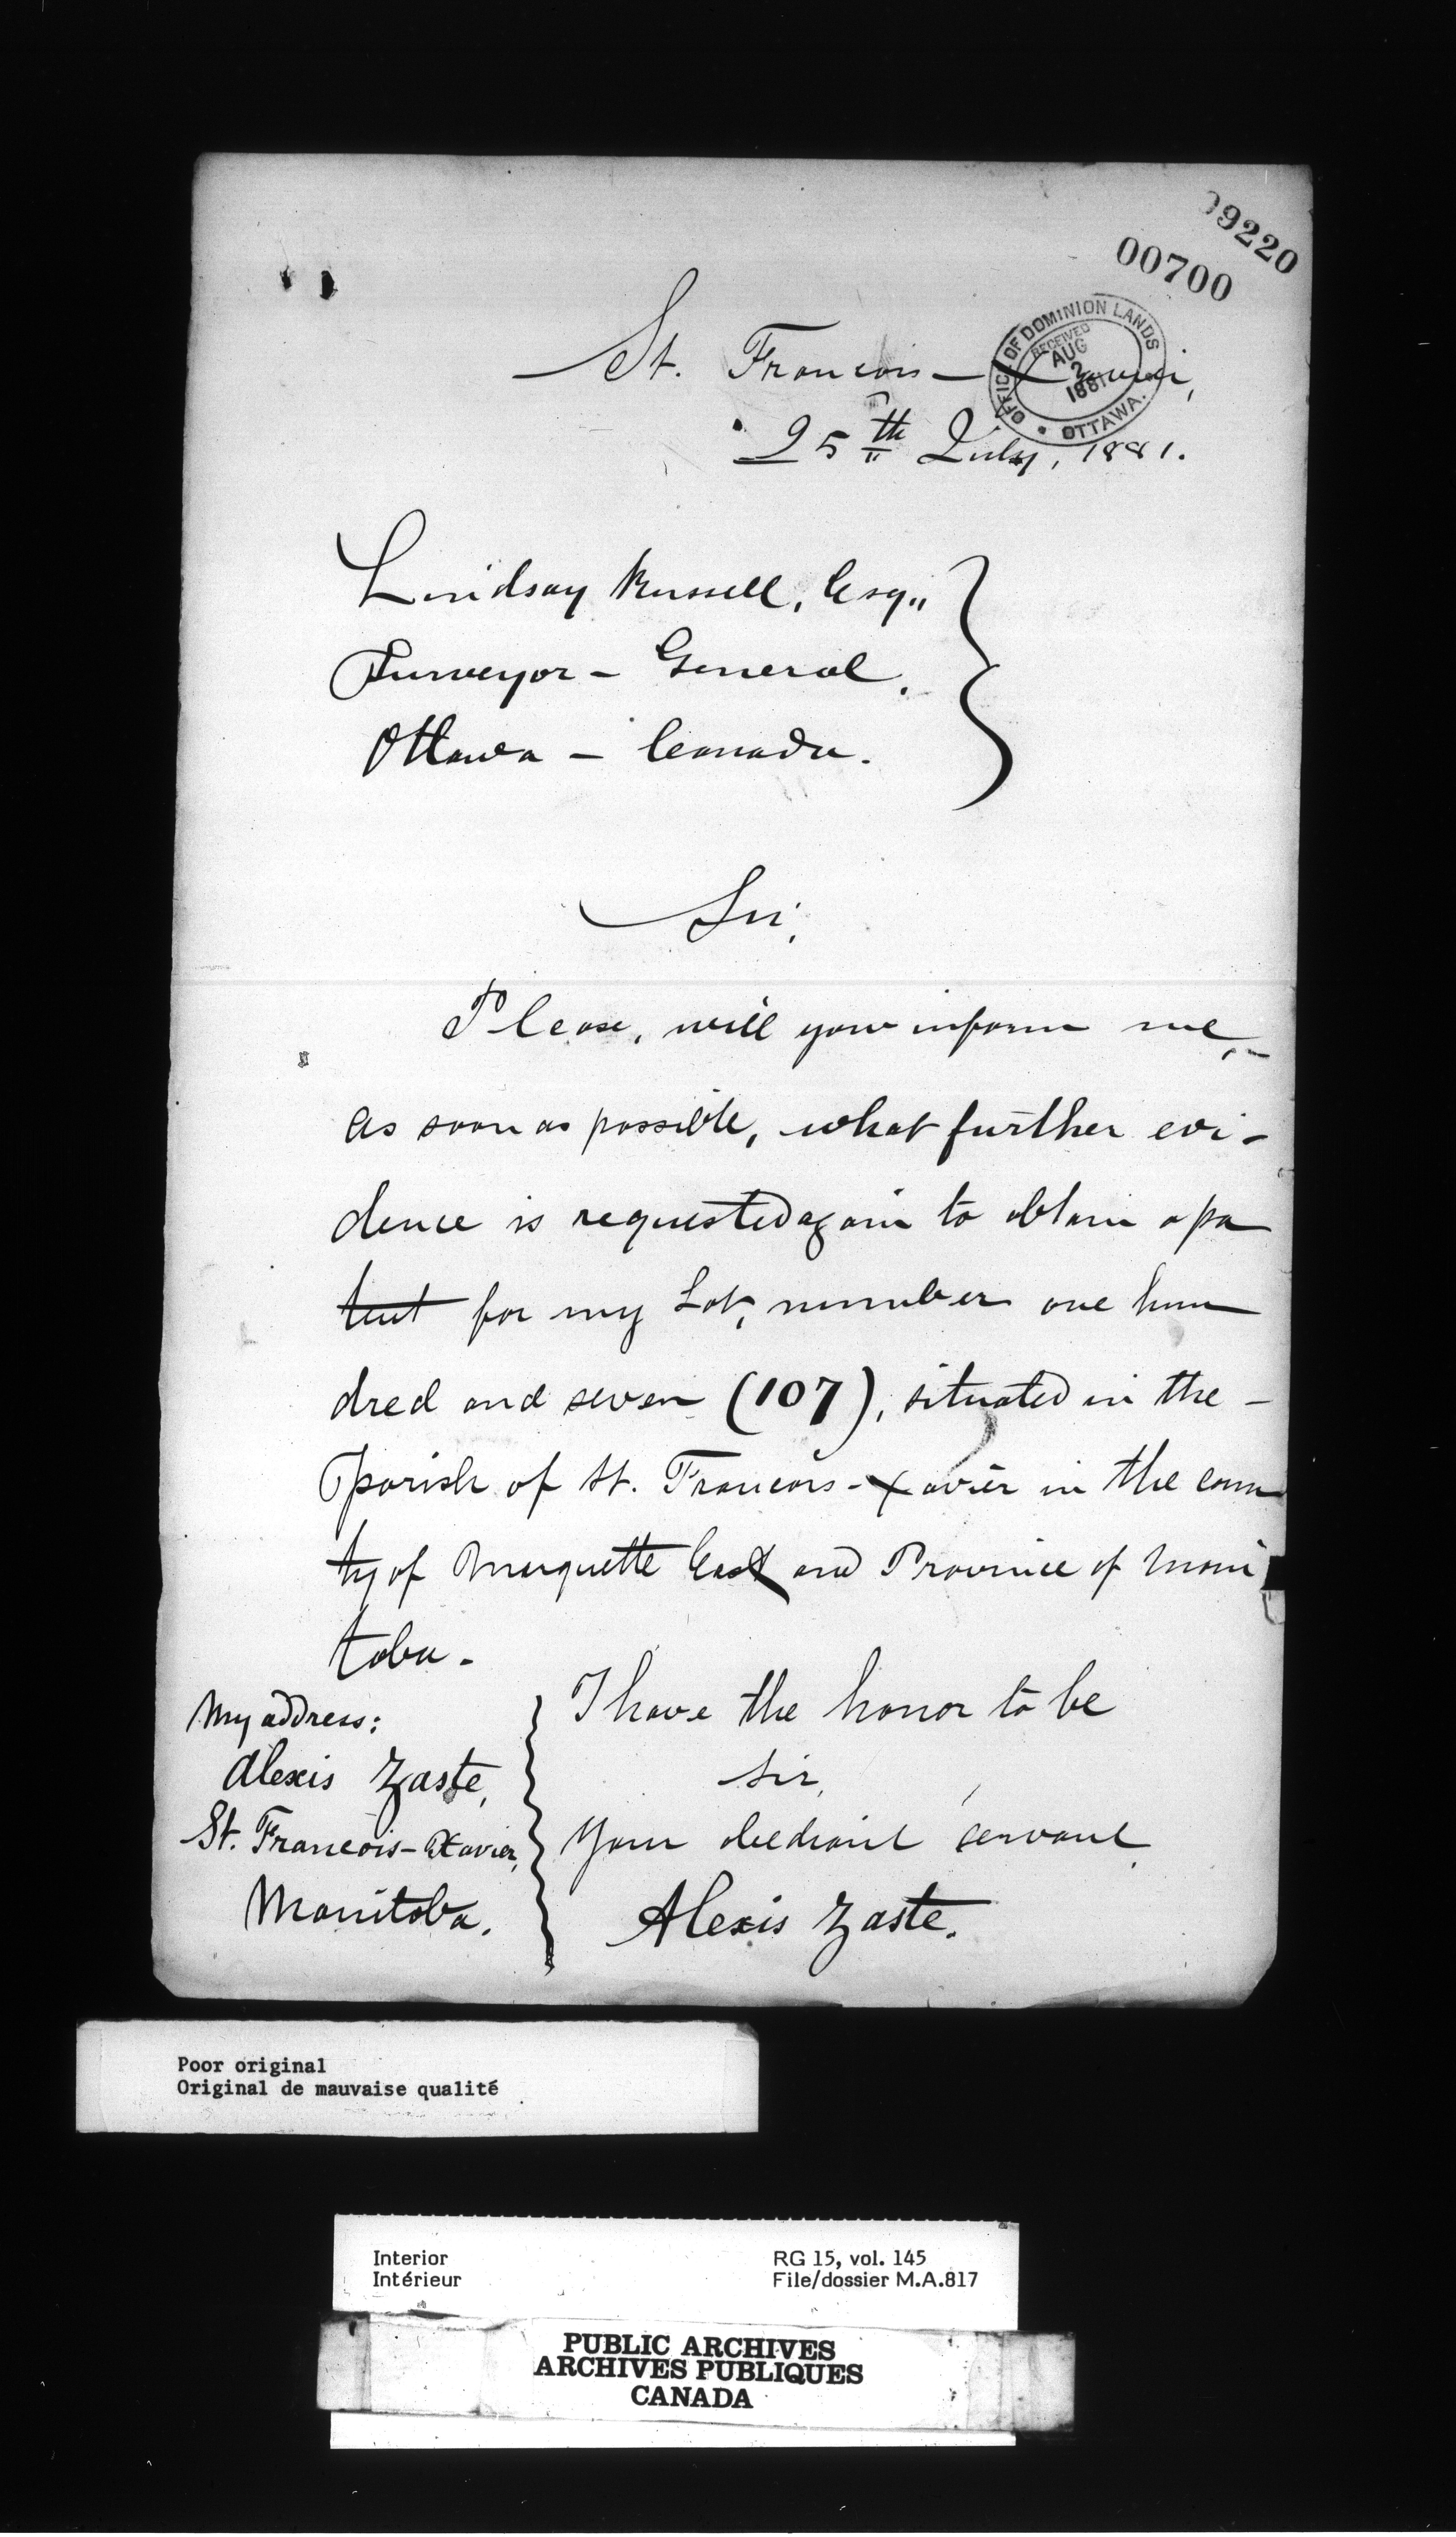 09220
00700
OFFICE OF DOMINION LANDS
RECEIVED
AUG
2
1881
OTTAWA.
St. Francois-Xavier,
25th July, 1881.
Lindsay Russell, Esq.,
Surveyor - General,
Ottawa - Canada.
Sir,
Please, will you inform me,
as soon as possible, what further evi-
dence is requested again to obtain a pa
tent for my Lot, number one hun
dred and seven (107), situated in the -
parish of St. Francois-Xavier in the coun
ty of Marquette East and Province of Mani
toba -
I have the honor to be
Sir,
Your obediant servant
Alexis Zaste.
My address:
Alexis Zaste,
St. Francois-Xavier,
Manitoba.
Poor original
Original de mauvaise qualité
Interior
Intérieur
RG 15, vol. 145
File/dossier M.A.817
PUBLIC ARCHIVES
ARCHIVES PUBLIQUES
CANADA